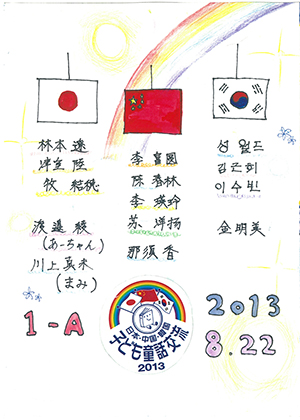 林本 遼
李 富圓
성 월드
陈 春林
김근희
牧 結穂
李 瑛玲
이수빈
渡邉 稜
苏 烊扬
金明美
(あーちゃん)
那須 香
川上 真未
(まみ)
1-A
日本・中国・韓国
子ども童話交流
2013
2013
8.22